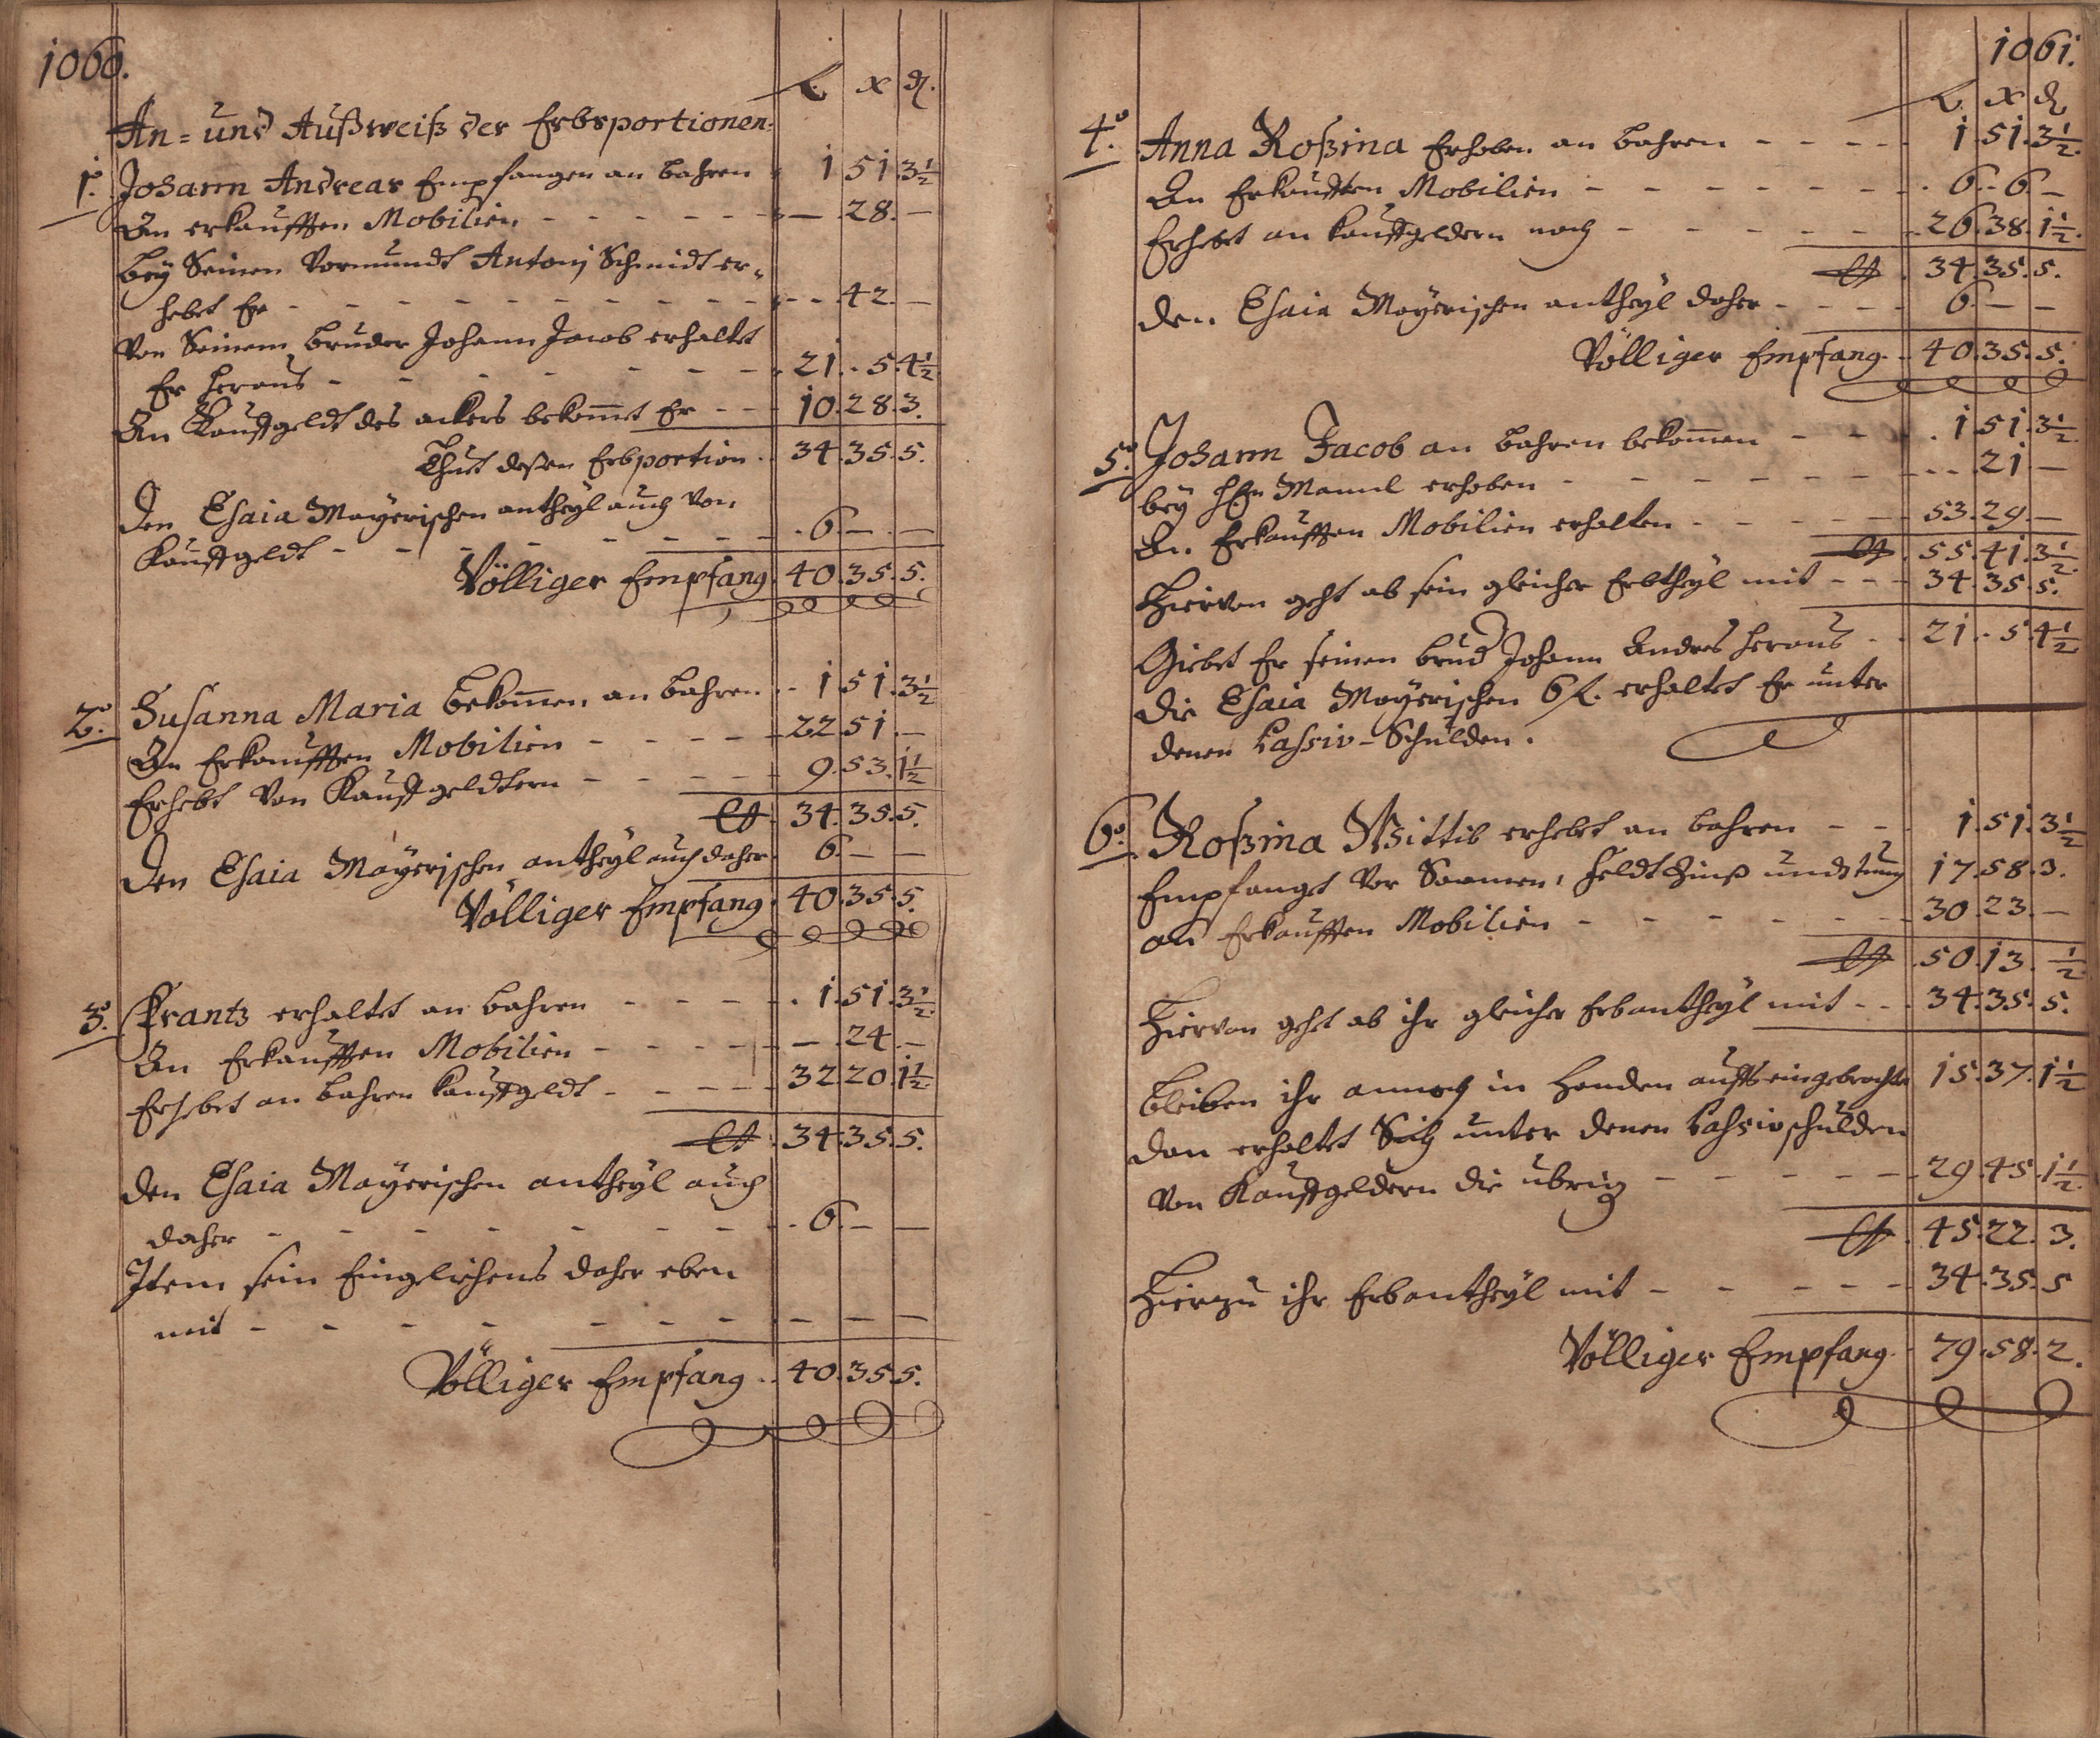 1060.
f. x ₰.
An= und Außweiß der Erbsportionen.
1.° Johann Andreas Empfangen an bahren 1 51. 3½
An erkaufften Mobilien - - - - - - — 28. —
bey Seinen Vormundt Antonj Schmidt er=
hebet Er - - - - - - - - - - - - 42. —
Von Seinem bruder Johann Jacob erhaltet
Er heraus - - - - - - - 21. 5. 4½
An Kauffgeldt des ackers bekom̅et Er - - 10. 28. 3.
Thut deßen Erbportion. 34. 35. 5.
Den Esaia Mayerischen antheyl auch von
Kauffgeldt - - - - - - - 6. — —
Völliger Empfang. 40. 35. 5.
2.° Susanna Maria bekom̅en an bahren - - 1 51. 3½
An Erkaufften Mobilien - - - - - 22 51. —
Erhebt von Kauffgeldtern - - - - - 9. 53. 1½
34. 35. 5.
Den Esaia Mayerischen antheyl auch daher. 6. — —
Völliger Empfang. 40. 35. 5.
3.° Frantz erhaltet an bahren - - - - - 1. 51. 3½
An Erkaufften Mobilien - - - - - — 24. —
Erhebet an bahren Kauffgeldt - - - - - 32 20. 1½
34. 35. 5.
Den Esaia Mayerischen antheyl auch
daher - - - - - - - - 6. — —
Item sein Eingelichens daher eben
mit - - - - - - - - — — —
Völliger Empfang - - 40. 35 5.
1061.
f. x ₰
4.° Anna Roßina Erhoben an bahren - - - - 1 51. 3½
An Erkaufften Mobilien - - - - - - - 6. - 6 —
Erhebet an Kauffgeldern noch - - - - - - 26. 38. 1½.
34. 35. 5.
Den Esaia Mayerischen antheyl daher - - - - 6. — —
Völliger Empfang. - 40. 35. 5.
5.° Johann Jacob an bahren bekom̅en - - - 1 51. 3½
bey HEn Mannl erhoben - - - - - - - - - 21 —
An Erkaufften Mobilien erhalten - - - - - 53. 29. —
55. 41. 3½
Hiervon geht ab sein gleicher Erbtheyl mit - - - 34. 35. 5.
Giebet Er seinen brud Johann Andres heraus - - 21 - 5. 4½
Die Esaia Mayerischen 6 f. erhaltet Er unter
denen Passiv-Schulden.
6.° Roßina Wittib erhebet an bahren - - - 1. 51. 3½
Empfanget vor Saamen, Feldt Zinß und 17. 58. 3.
an Erkaufften Mobilien - - - - - - - 30. 23. —
50. 13. ½
Hiervon gehet ab ihr gleicher Erbantheyl mit - - 34. 35. 5.
bleiben ihr annoch in Handen auffs eingebrachte 15. 37. 1½
Dan erhaltet Sich unter denen Passivschulden
von Kauffgeldern die übrig - - - - - - 29. 45. 1½
45. 22. 3.
Hierzu ihr Erbantheyl mit - - - - - - 34. 35. 5
Völliger Empfang. - 79. 58. 2.